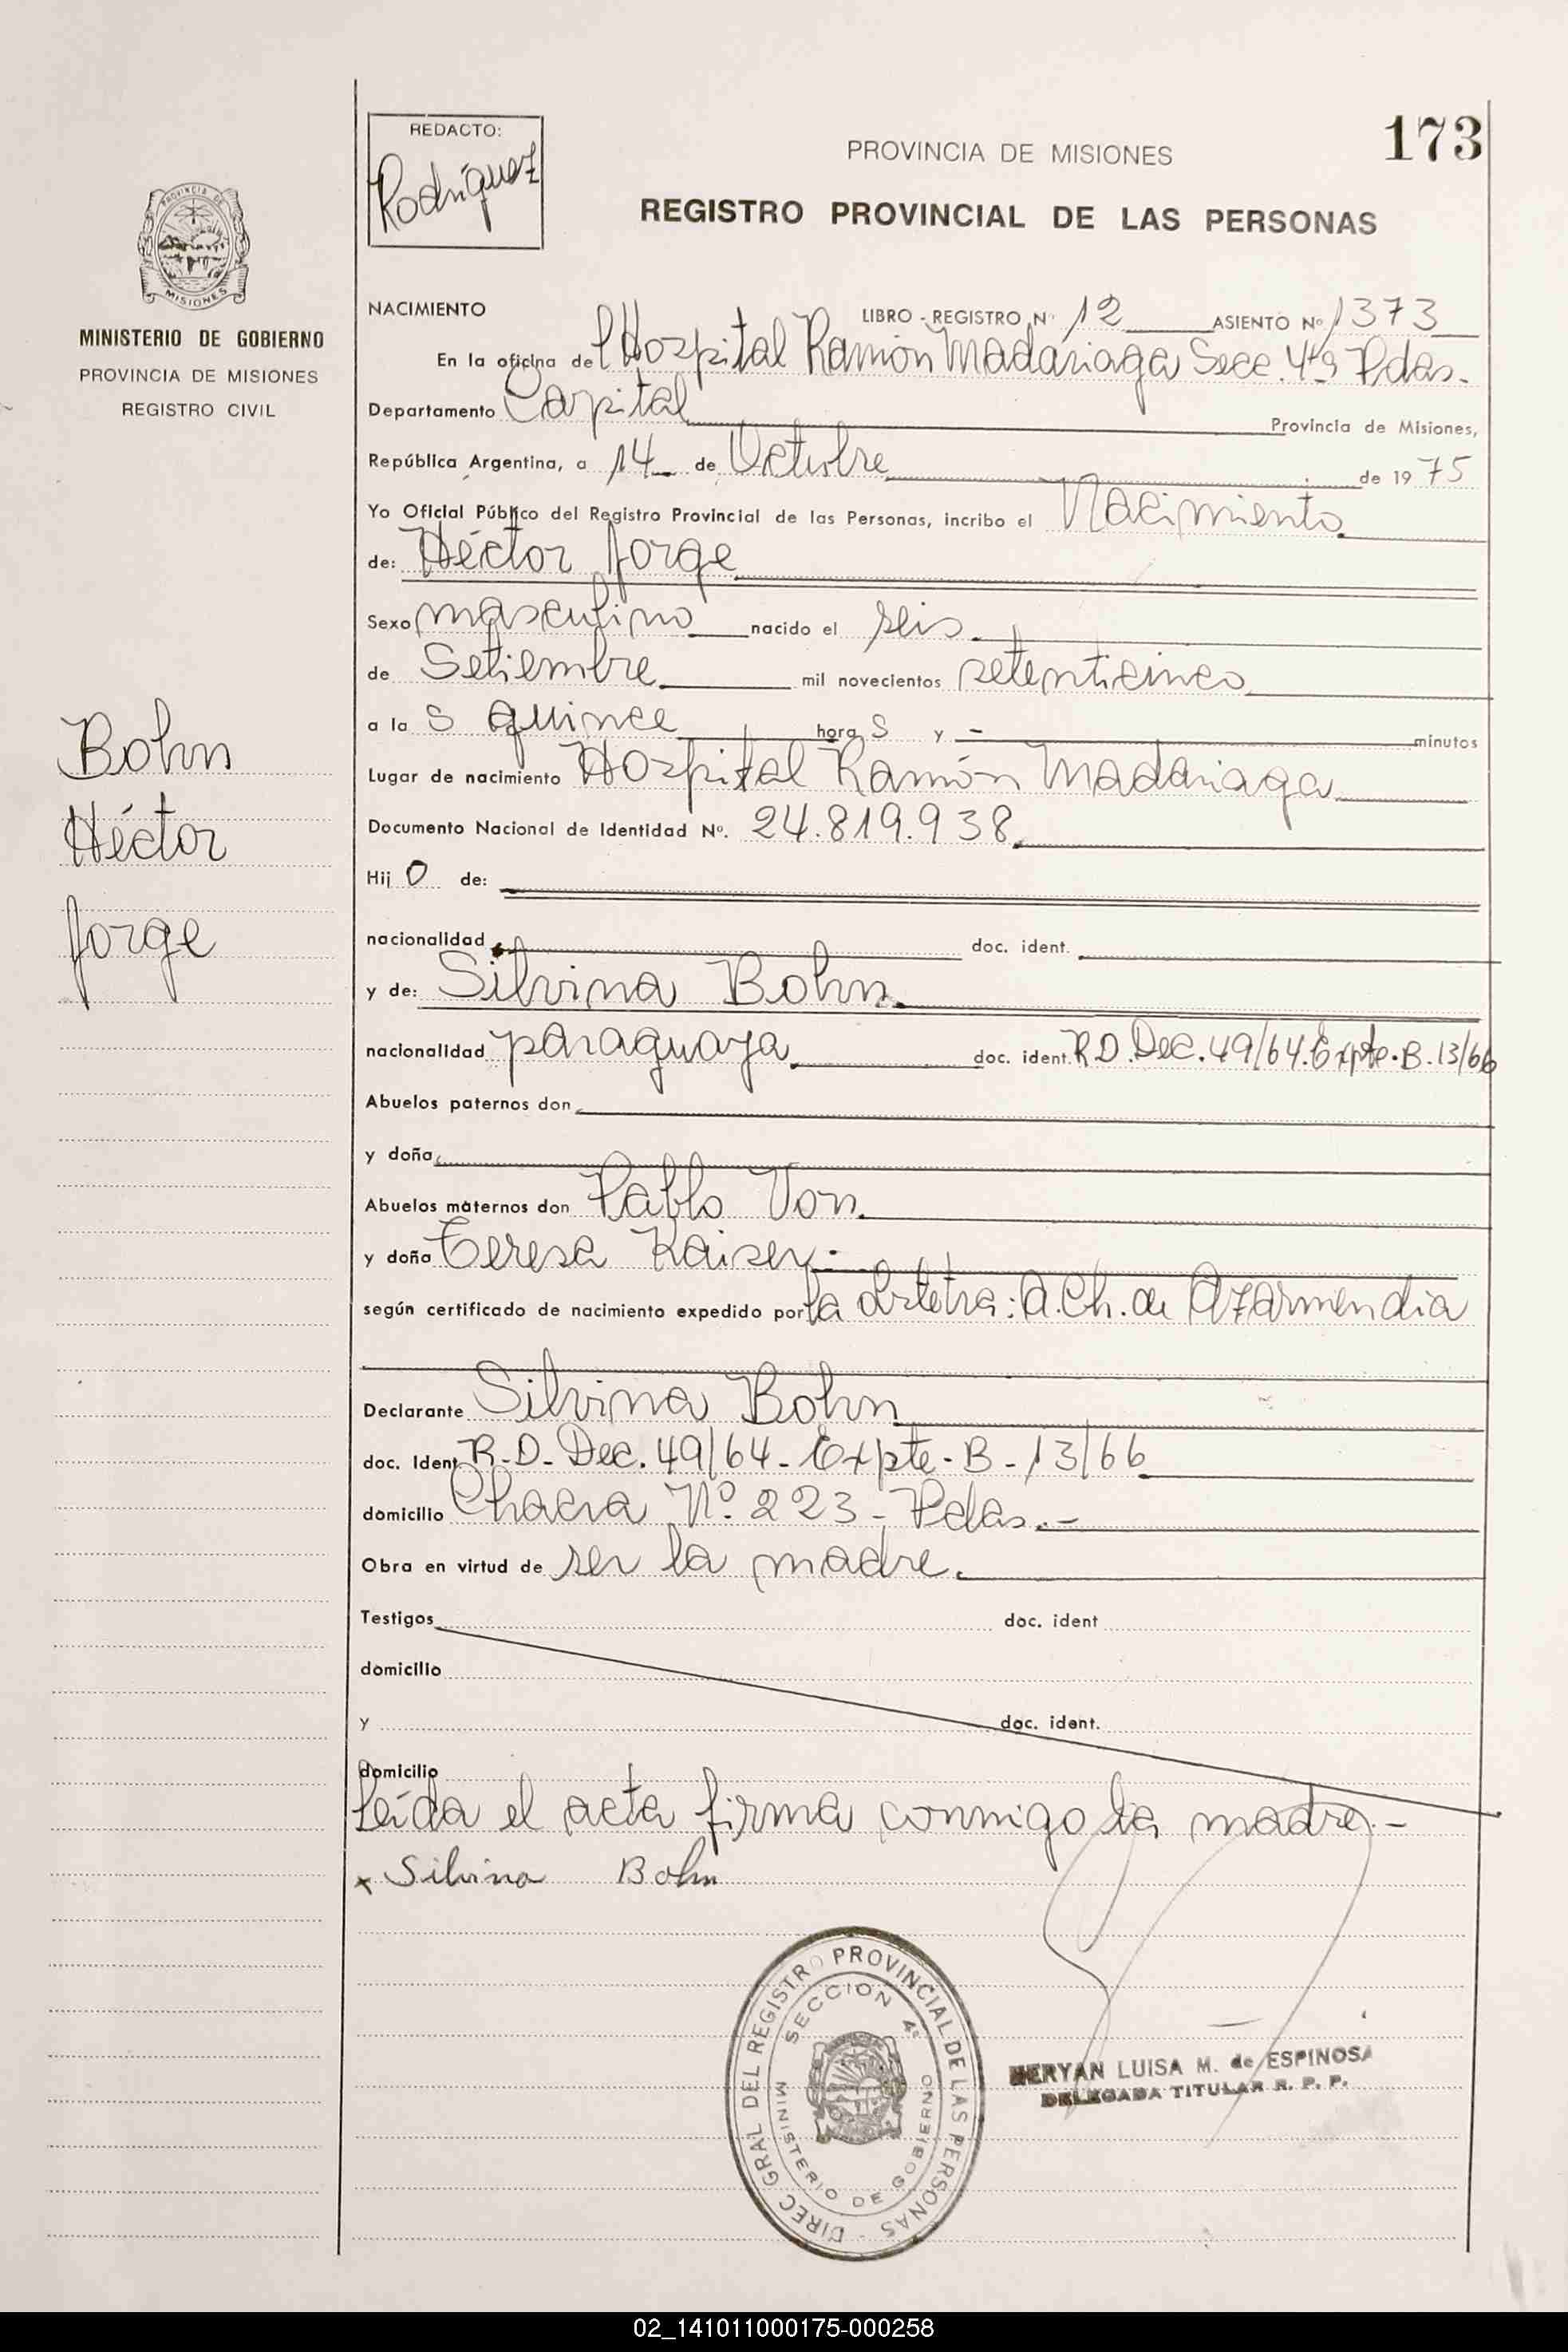 173
REDACTO:
Rodríguez
PROVINCIA DE MISIONES
REGISTRO PROVINCIAL DE LAS PERSONAS
PROVINCIA DE
MISIONES
MINISTERIO DE GOBIERNO
PROVINCIA DE MISIONES
REGISTRO CIVIL
Bohn
Héctor
Jorge
NACIMIENTO LIBRO - REGISTRO Nº 12 ASIENTO Nº 1373
En la oficina del Hospital Ramón Madariaga Secc. 4ta Pdas.
Departamento Capital Provincia de Misiones,
República Argentina, a 14 de Octubre de 1975
Yo Oficial Público del Registro Provincial de las Personas, incribo el Nacimiento
de: Héctor Jorge
Sexo masculino nacido el seis
de Setiembre mil novecientos setenticinco
a las quince horas y - minutos
Lugar de nacimiento Hospital Ramón Madariaga
Documento Nacional de Identidad Nº. 24.819.938
Hijo de:
nacionalidad doc. ident.
y de: Silvina Bohn
nacionalidad paraguaya doc. ident. R.D. Dec. 49/64. Expte. B. 13/66
Abuelos paternos don
y doña
Abuelos maternos don Pablo Von
y doña Teresa Kaiser.
según certificado de nacimiento expedido por la Obstetra: A. Ch. de Azarmendia
Declarante Silvina Bohn
doc. Ident R-D- Dec. 49/64 - Expte - B - 13/66
domicilio Chacra Nº 223 - Pdas. -
Obra en virtud de ser la madre.
Testigos doc. ident
domicilio
y doc. ident.
domicilio
Leída el acta firma conmigo la madre. -
x Silvina Bohn
DIREC GRAL DEL REGISTRO PROVINCIAL DE LAS PERSONAS -
SECCION 4º
MINISTERIO DE GOBIERNO
NERYAN LUISA M. de ESPINOSA
DELEGADA TITULAR R. P. P.
02_141011000175-000258